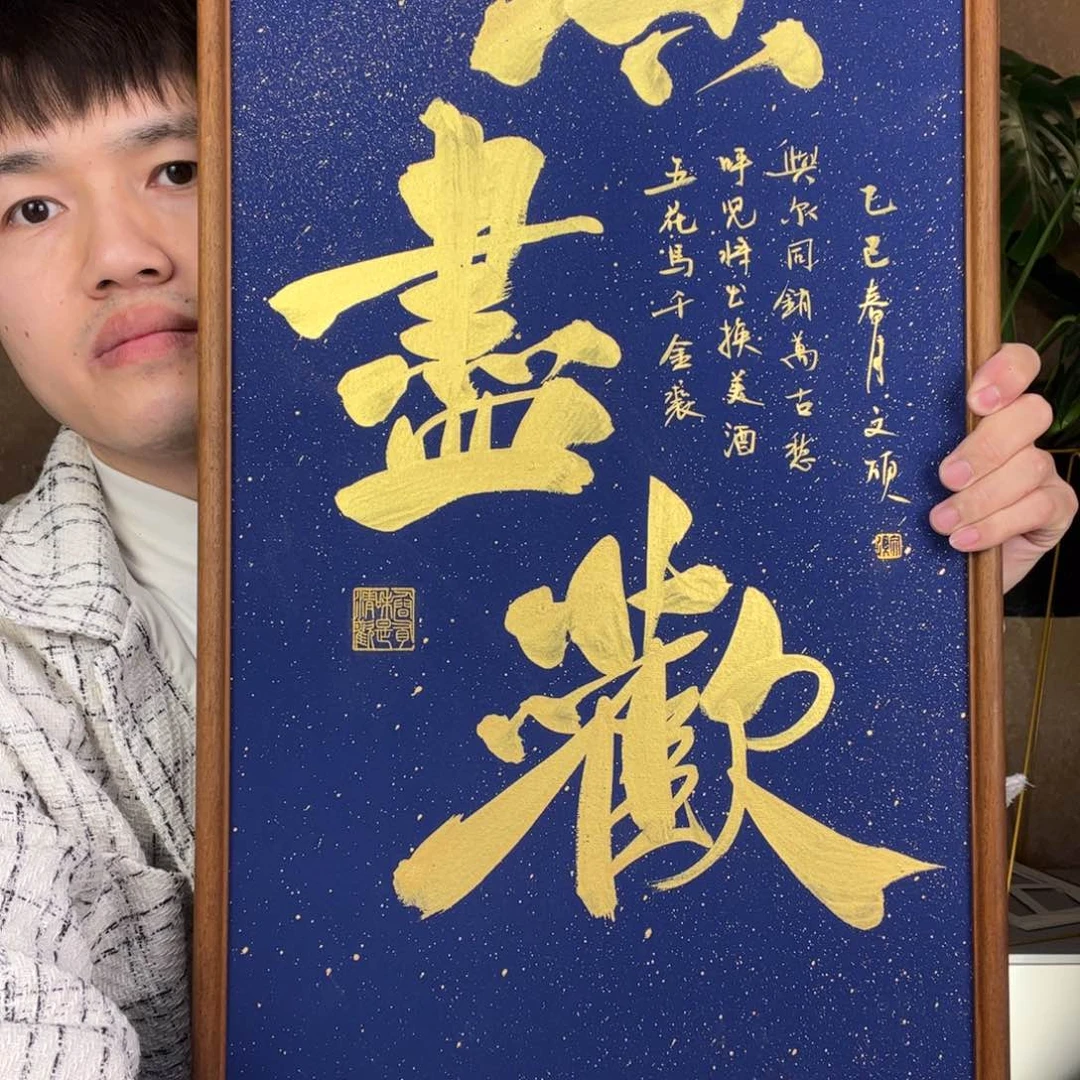 盡歡
五花馬千金裘
呼兒将出換美酒
與尔同銷萬古愁
乙巳春月文碩